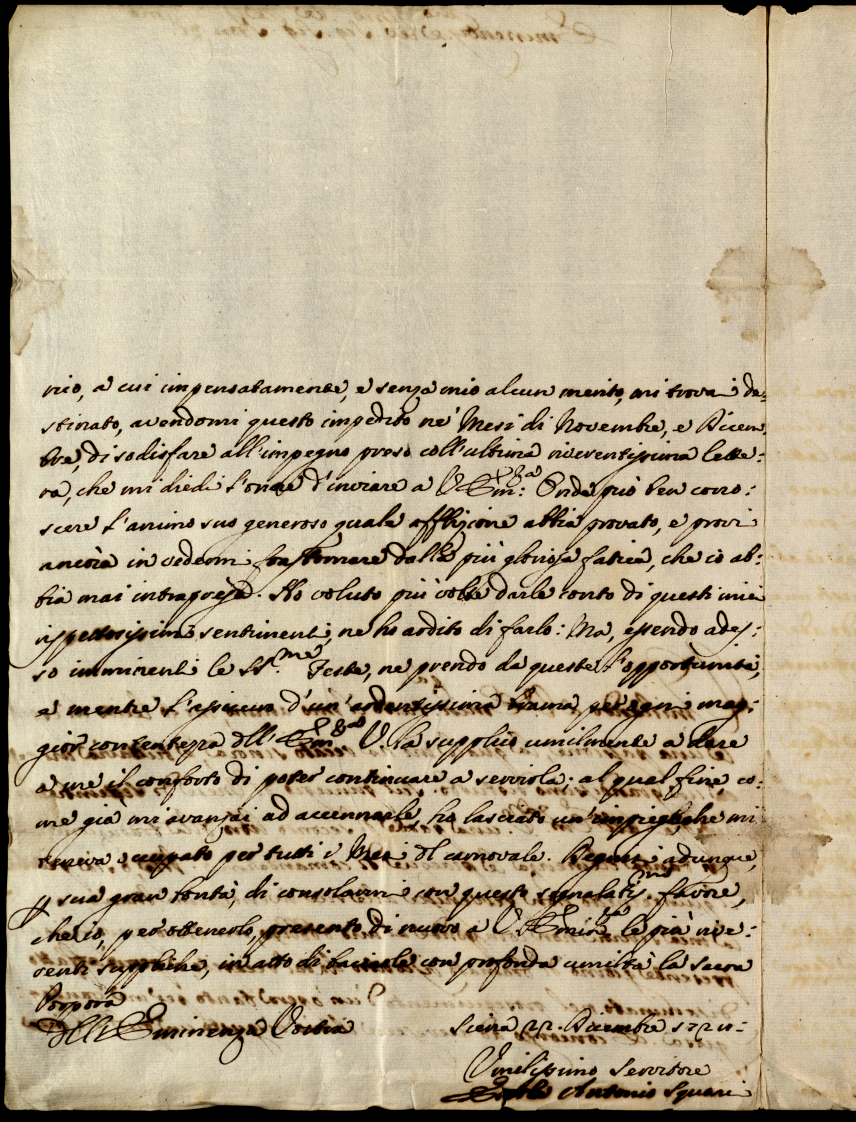 rio, a cui impensatamente, e senza mio alcun merito, mi trovai de=
stinato, avendomi questo impedito ne' Mesi di Novembre, e Dicem=
bre, di sodisfare all'impegno preso coll'ultima riverentissima lette=
ra, che mi diedi l'onore d'inviare a V. Em:za Onde può ben cono=
scere l'animo suo generoso quale afflizione abbia provato, e provi
ancora in vedermi frastornare dalla più gloriosa fatica, che io ab=
bia mai intrapresa. Ho voluto più volte darle conto di questi miei
rispettosissimi sentimenti, ne ho ardito di farlo: Ma, essendo ades=
so imminenti le SS.me Feste, ne prendo da queste l'opportunità,
e mentre l'assicuro d'un'ardentissima brama per ogni mag=
gior contentezza dell' Em.za V. la supplico umilmente a dare
a me il conforto di poter continuare a servirla; al qual fine, co=
me già mi avanzai ad accennarle, ho lasciato un'impiego, che mi
teneva occupato per tutti i Mesi del carnovale. Degnisi adunque,
p sua gran bontà, di consolarmi con questo segnalatis.mo favore,
che io, per ottenerlo, presento di nuovo a V. Emin.za le più rive=
renti suppliche, in atto di baciarle con profonda umiltà la sacra
Porpora
Dell'Eminenza Vostra Siena 22. Dicembre
Umilissimo Servitore
Antonio Squarci